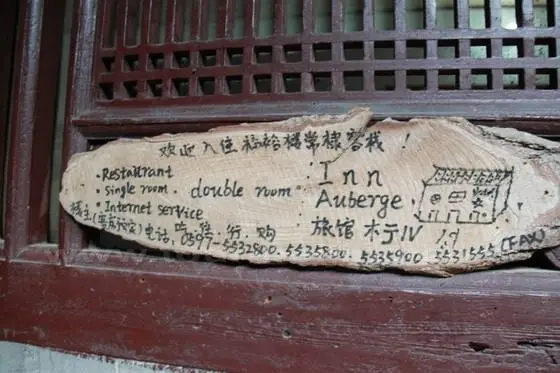 欢迎入住福裕楼常棣客栈！
·Restaurant
·single room. double room
·Internet service
吃.住.行.购
Inn
Auberge
旅馆 ホテル
电话: 0597-5532800. 5535800. 5535900 5531555 (FAX)